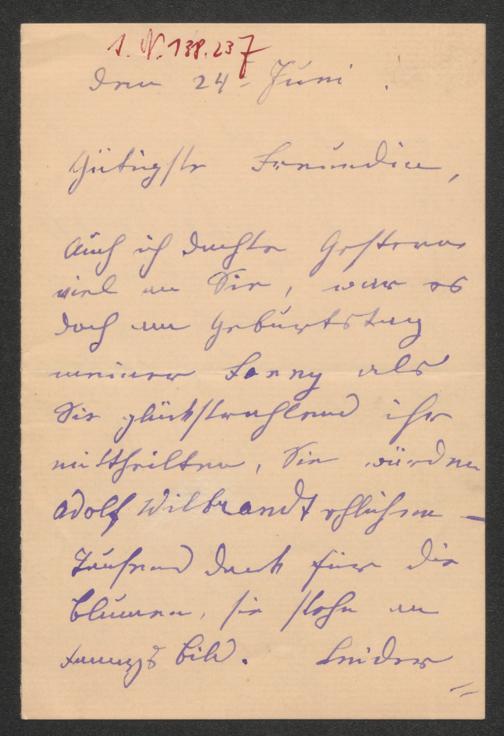 I. N. 138.237
den 24 Juni.
Gütigste Freundin,
Auch ich dachte Gestern
viel an Sie, war es
doch am Geburtstag
meiner Fanny als
Sie glückstrahlend ihr
mittheilten, Sie würden
Adolf Wilbrandt ehlichen —
Tausend Dank für die
Blumen, sie stehn an
Fannys Bild. Leider